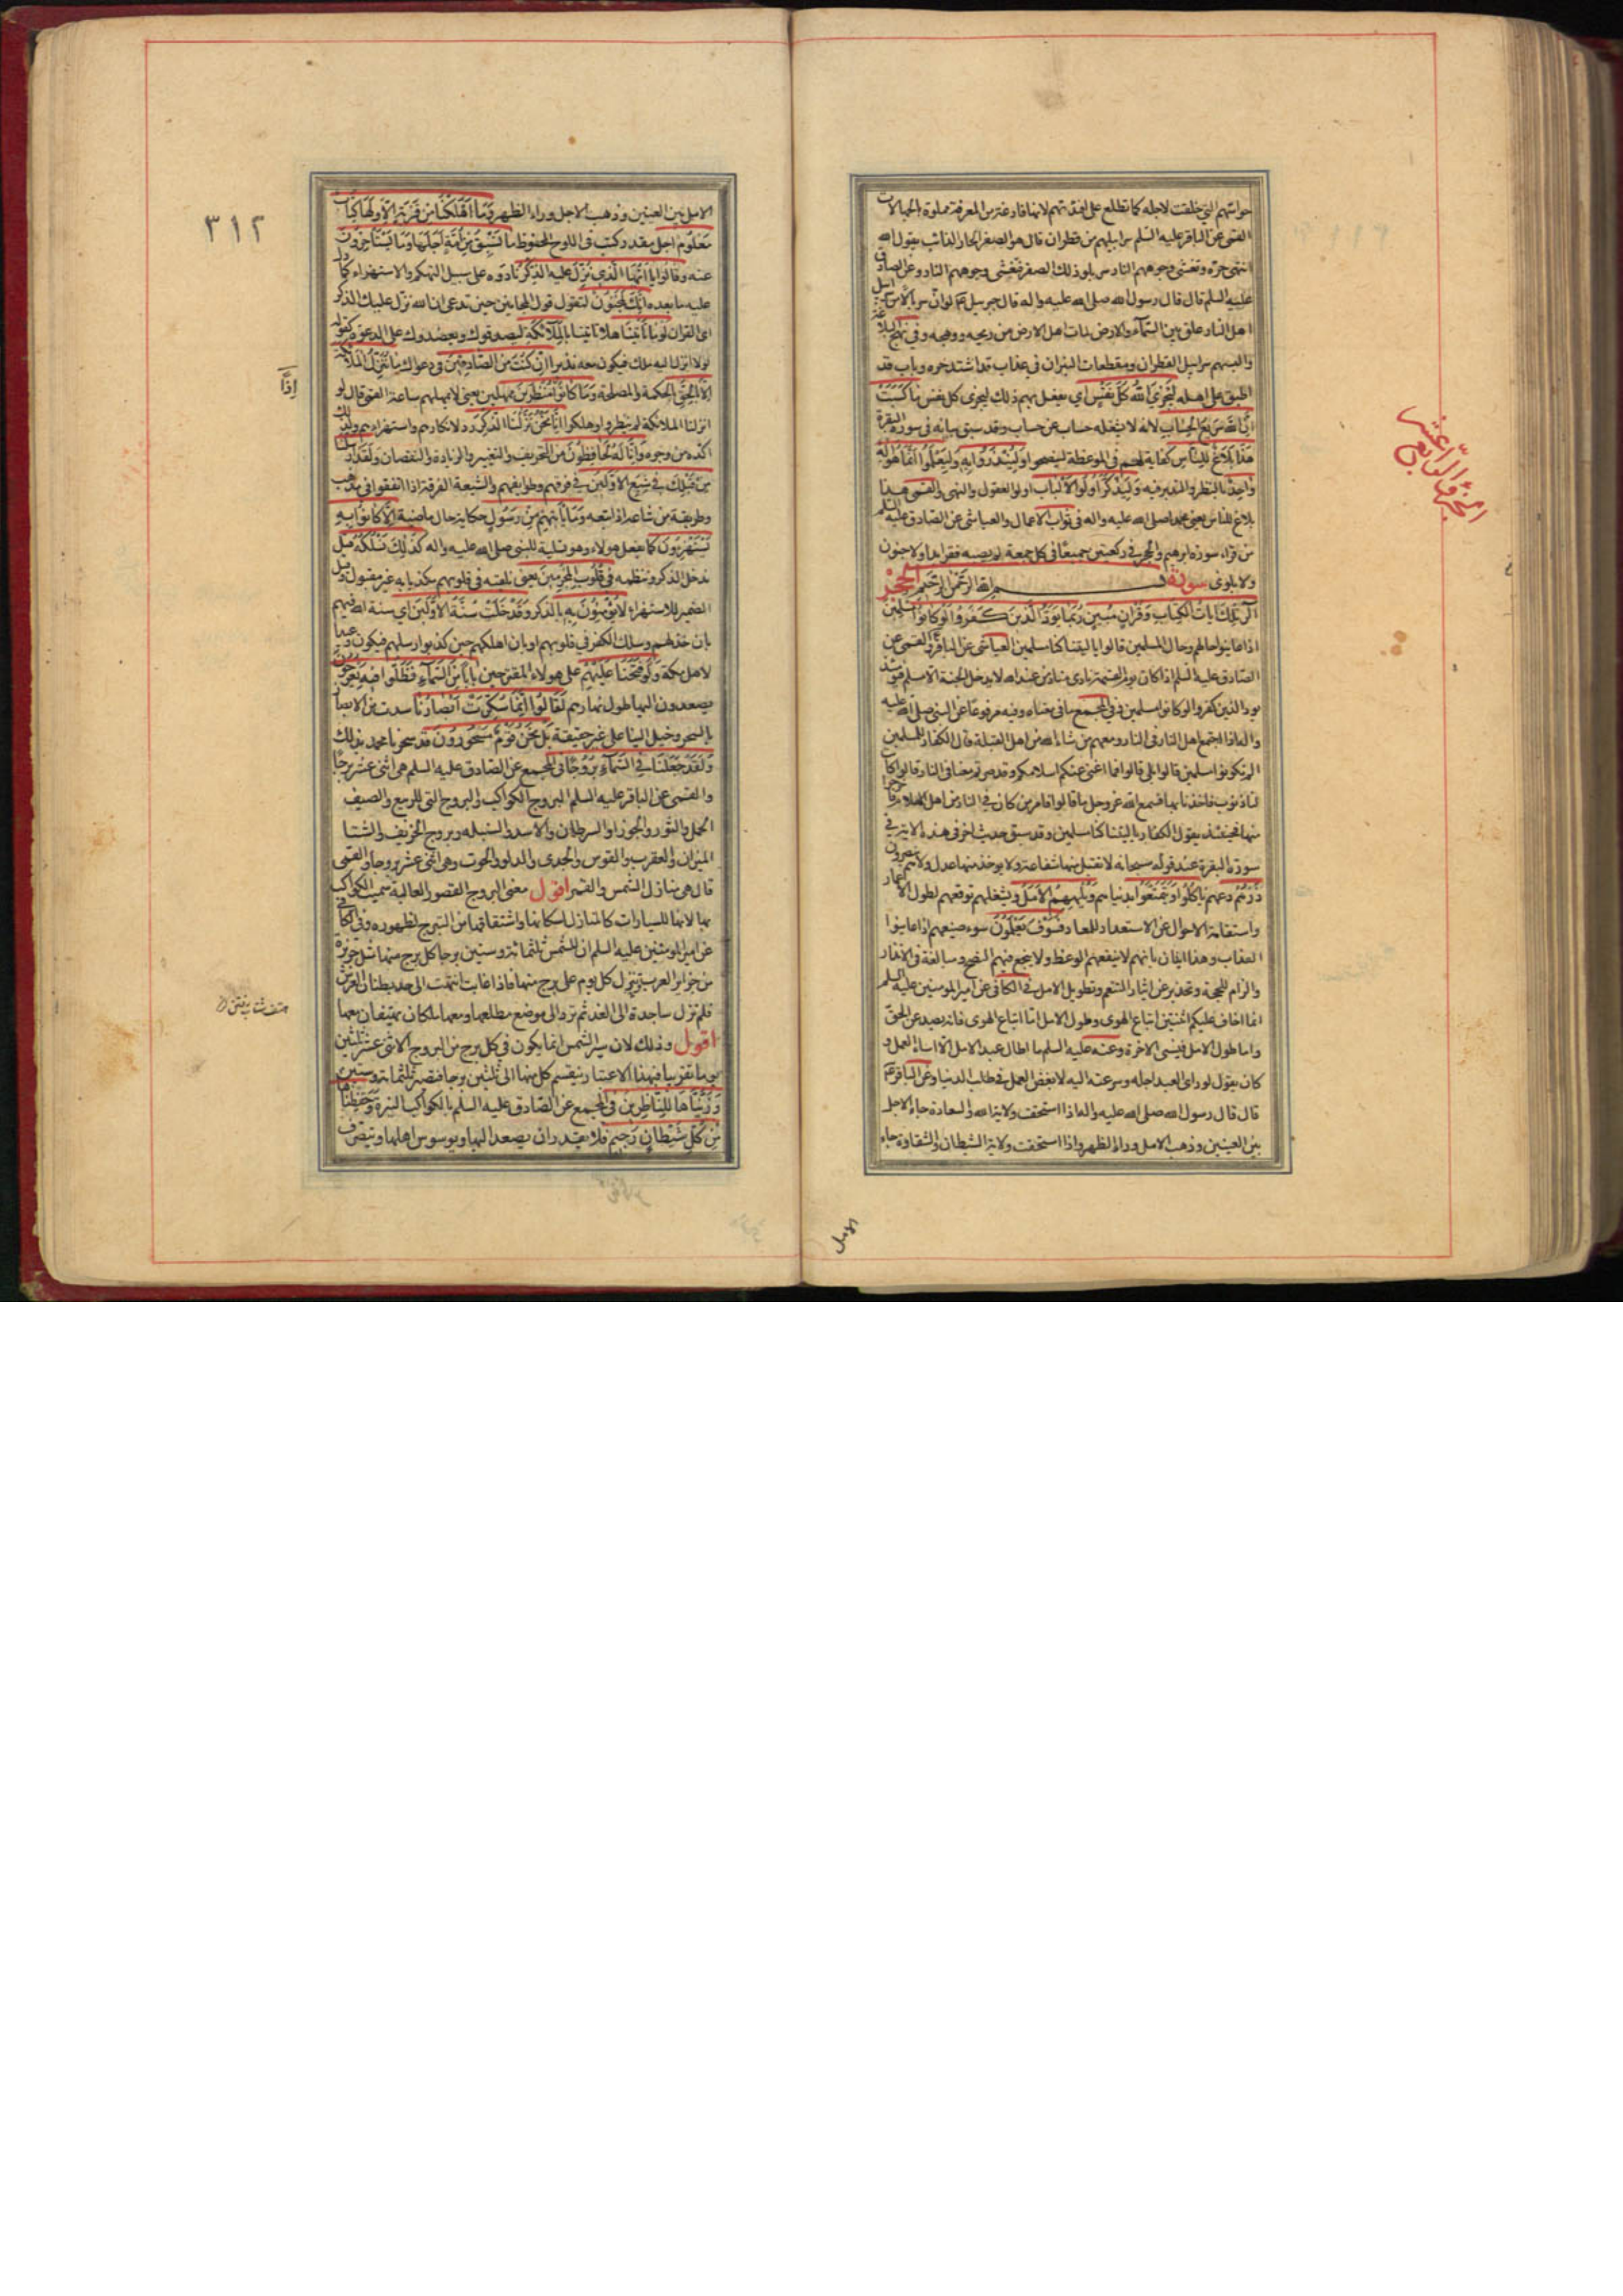 حواسهم التي خلقت لاجله كما تطلع على افئدتهم لانها فارغة من المعرفة مملوة بالجهالات
القمى عن الباقر عليه السلم سرابيلهم من قطران قال هو الصفر الحار الذائب يقول الله
انتهى حره وتغشى وجوههم النار سربلوا ذلك الصفر فتغشى وجوههم النار وعن الصادق
عليه السلم قال قال رسول الله صلى الله عليه واله قال جبرئيل لو ان سربالا من سرابيل
اهل النار علق بين السماء والارض لمات اهل الارض من ريحه ووهجه وفى نهج البلاغة
والبسهم سرابيل القطران ومقطعات النيران فى عذاب قد اشتد حره وباب قد
اطبق على اهله ليجزي الله كل نفس اي يفعل بهم ذلك ليجزى كل نفس ما كسبت
ان الله سريع الحساب لانه لا يشغله حساب عن حساب وقد سبق بيانه فى سورة البقرة
هذا بلاغ للناس كفاية لهم فى الموعظة لينصحوا ولينذروا به وليعلموا انما هو اله
واحد بالنظر والتدبر فيه وليذكر اولوا الالباب اولوا العقول والنهى والقمى هذا
بلاغ للناس يعنى محمدا صلى الله عليه واله فى ثواب الاعمال والعياشى عن الصادق عليه السلم
من قراء سورة ابرهيم والحجر في ركعتين جميعا فى كل جمعة لم يصبه فقر ابدا ولا جنون
ولا بلوى سورة الحجر بسم الله الرحمن الرحيم
الر تلك ايات الكتاب وقران مبين ربما يود الذين كفروا لو كانوا مسلمين
اذا عاينوا حالهم وحال المسلمين قالوا يا ليتنا كنا مسلمين العياشى عن الباقر والقمى عن
الصادق عليه السلم اذا كان يوم القيمة نادى مناد من عند الله لا يدخل الجنة الا مسلم فيومئذ
يود الذين كفروا لو كانوا مسلمين وفي المجمع ما فى معناه وفيه مرفوعا عن النبى صلى الله عليه
واله اذا اجتمع اهل النار فى النار ومعهم من شاء الله من اهل القبلة قال الكفار للمسلمين
الم تكونوا مسلمين قالوا بلى قالوا فما اغنى عنكم اسلامكم وقد صرتم معنا فى النار قالوا كان
لنا ذنوب فاخذنا بها فسمع الله عز وجل ما قالوا فامر من كان في النار من اهل الاسلام فاخرجوا
منها فحينئذ يقول الكفار يا ليتنا كنا مسلمين وقد سبق حديث اخر فى هذه الاية في
سورة البقرة عند قوله سبحانه لا تقبل منها شفاعة ولا يوخذ منها عدل ولا هم ينصرون
ذرهم دعهم ياكلوا ويتمتعوا بدنياهم ويلههم الامل ويشغلهم توقعهم لطول الاعمار
واستقامة الاحوال عن الاستعداد للمعاد فسوف يعلمون سوء صنيعهم اذا عاينوا
العذاب وهذا ايذان بانهم لا ينفعهم الوعظ ولا ينجع فيهم النصح ومبالغة فى الانذار
والزام للحجة وتحذير عن ايثار التنعم وتطويل الامل فى الكافى عن امير المومنين عليه السلم
انما اخاف عليكم اثنتين اتباع الهوى وطول الامل اما اتباع الهوى فانه يصد عن الحق
واما طول الامل فينسى الاخرة وعنه عليه السلم ما اطال عبد الامل الا اساء العمل و
كان يقول لو راى العبد اجله وسرعته اليه لابغض العمل في طلب الدنيا وعن الباقر
قال قال رسول الله صلى الله عليه واله اذا استحقت ولاية الله والسعادة جاء الاجل
بين العينين وذهب الامل وراء الظهر واذا استحقت ولاية الشيطان والشقاوة جاء
الامل
الجزؤ الرابع عشر
٣١٢
الامل بين العينين وذهب الاجل وراء الظهر وما اهلكنا من قرية الا ولها كتاب
معلوم اجل مقدر كتب فى اللوح المحفوظ ما تسبق من امة اجلها وما يستاخرون
عنه وقالوا يا ايها الذي نزل عليه الذكر نادوه على سبيل التهكم والاستهزاء كما دل
عليه ما بعده انك لمجنون لتقول قول المجانين حين تدعى ان الله نزل عليك الذكر
اى القران لو ما تاتينا هلا تاتينا بالملائكة ليصدقوك ويعضدوك على الدعوة كقوله
لولا انزل اليه ملك فيكون معه نذيرا ان كنت من الصادقين فى دعواك ما تنزل الملائكة
الا بالحق بالحكمة والمصلحة وما كانوا منظرين ممهلين يعنى لا يمهلهم ساعة القمى قال لو
انزلنا الملائكة لم ينظروا وهلكوا انا نحن نزلنا الذكر رد لانكارهم واستهزاءهم ولذلك
اكده من وجوه وانا له لحافظون من التحريف والتغيير والزيادة والنقصان ولقد ارسلنا
من قبلك في شيع الاولين في فرقهم وطوايفهم والشيعة الفرقة اذا اتفقوا فى مذهب
وطريقة من شاعه اذا تبعه وما ياتيهم من رسول حكاية حال ماضية الا كانوا به
يستهزؤن كما يفعل هولاء وهو تسلية للنبى صلى الله عليه واله كذلك نسلكه قيل
ندخل الذكر وننظمه فى قلوب المجرمين يعنى نلقيه فى قلوبهم مكذبا به غير مقبول وقيل
الضمير للاستهزاء لا يؤمنون به بالذكر وقد خلت سنة الاولين اى سنة الله فيهم
بان خذلهم وسلك الكفر في قلوبهم او بان اهلكهم حين كذبوا رسلهم فيكون وعيدا
لاهل مكة ولو فتحنا عليهم على هولاء المقترحين بابا من السماء فظلوا فيه يعرجون
يصعدون اليها طول نهارهم لقالوا انما سكرت ابصارنا سدت من الابصار
بالسحر وخيل الينا على غير حقيقة بل نحن قوم مسحورون قد سحرنا محمد بذلك
ولقد جعلنا في السماء بروجا فى المجمع عن الصادق عليه السلم هى اثنى عشر برجا
والقمى عن الباقر عليه السلم البروج الكواكب والبروج التى للربيع والصيف
الحمل والثور والجوزا والسرطان والاسد والسنبله وبروج الخريف والشتا
الميزان والعقرب والقوس والجدى والدلو والحوت وهى اثنى عشر بروجا والقمى
قال هى منازل الشمس والقمر اقول معنى البروج القصور العالية سميت الكواكب
بها لانها للسيارات كالمنازل لسكانها واشتقاقها من التبرج لظهوره وفى الكافى
عن امير المومنين عليه السلم ان للشمس ثلثمائة وستين برجا كل برج منها مثل جزيرة
من جزاير العرب تنزل كل يوم على برج منها فاذا غابت انتهت الى حد بطنان العرش
فلم تزل ساجدة الى الغد ثم ترد الى موضع مطلعها ومعها ملكان يهتفان معها
اقول وذلك لان سير الشمس انما يكون فى كل برج من البروج الاثنى عشر ثلثين
يوما تقريبا فبهذا الاعتبار ينقسم كل منها الى ثلثين برجا فتصير ثلثمائة وستين
وزيناها للناظرين فى المجمع عن الصادق عليه السلم بالكواكب النيرة وحفظناها
من كل شيطان رجيم فلا يقدر ان يصعد اليها ويوسوس اهلها ويتصرف
اذا